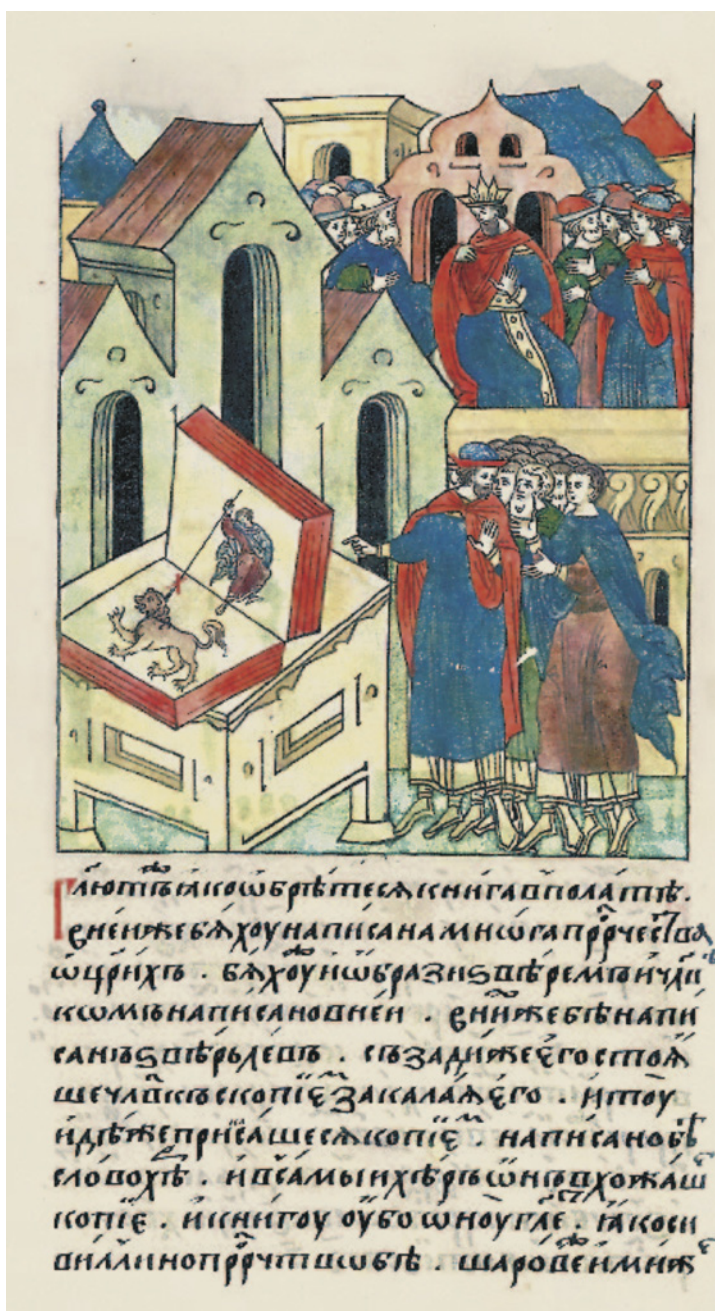 Глютъ ꙗко ѡбрѣтеся книга в полатѣ.
в неи же бѧхоу написана мнѡга прⷪ҇рчества
ѡ цр҃ихъ. бѧхоу и ѡбрази ѕвѣремъ и чл҃в
кѡмъ написано в неи. в неи же бѣ напи
санъ ѕвѣрь левъ. съзади же єго стоѧ
ше чл҃вкъ с копїємъ закалаѧ єго. и тоу
идѣже прикасашесѧ копїємъ. написано бѣ
слово хѣ. и в самыи хѣръ ѡнъ вхожаше
копїє. и книгоу оубо ѡноу гл҃ѥ. ꙗко си
виллино прⷪ҇рчтво бѣ. шаровеи мнѣ